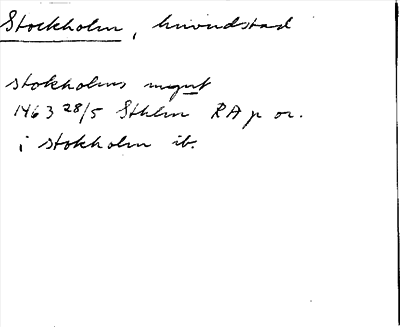 Stockholm, huvudstad
stokholms mynt
1463 28/5 Sthlm RA p or.
i stokholm ib.